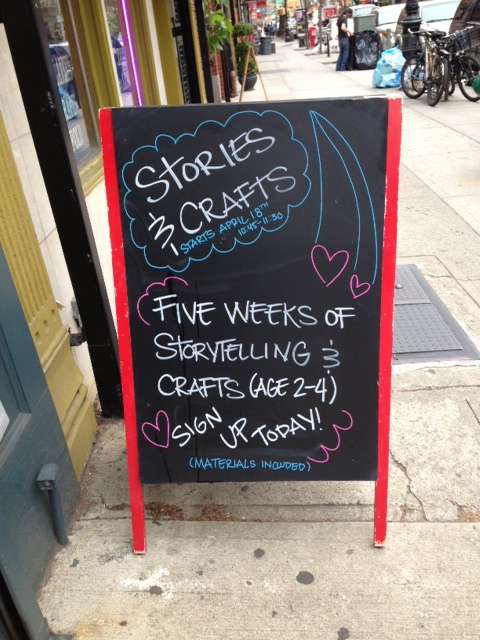 STORIES
& CRAFTS
STARTS APRIL 18TH
10:45-11:30
FIVE WEEKS OF
STORYTELLING &
CRAFTS (AGE 2-4)
SIGN
UP TODAY!
(MATERIALS INCLUDED)